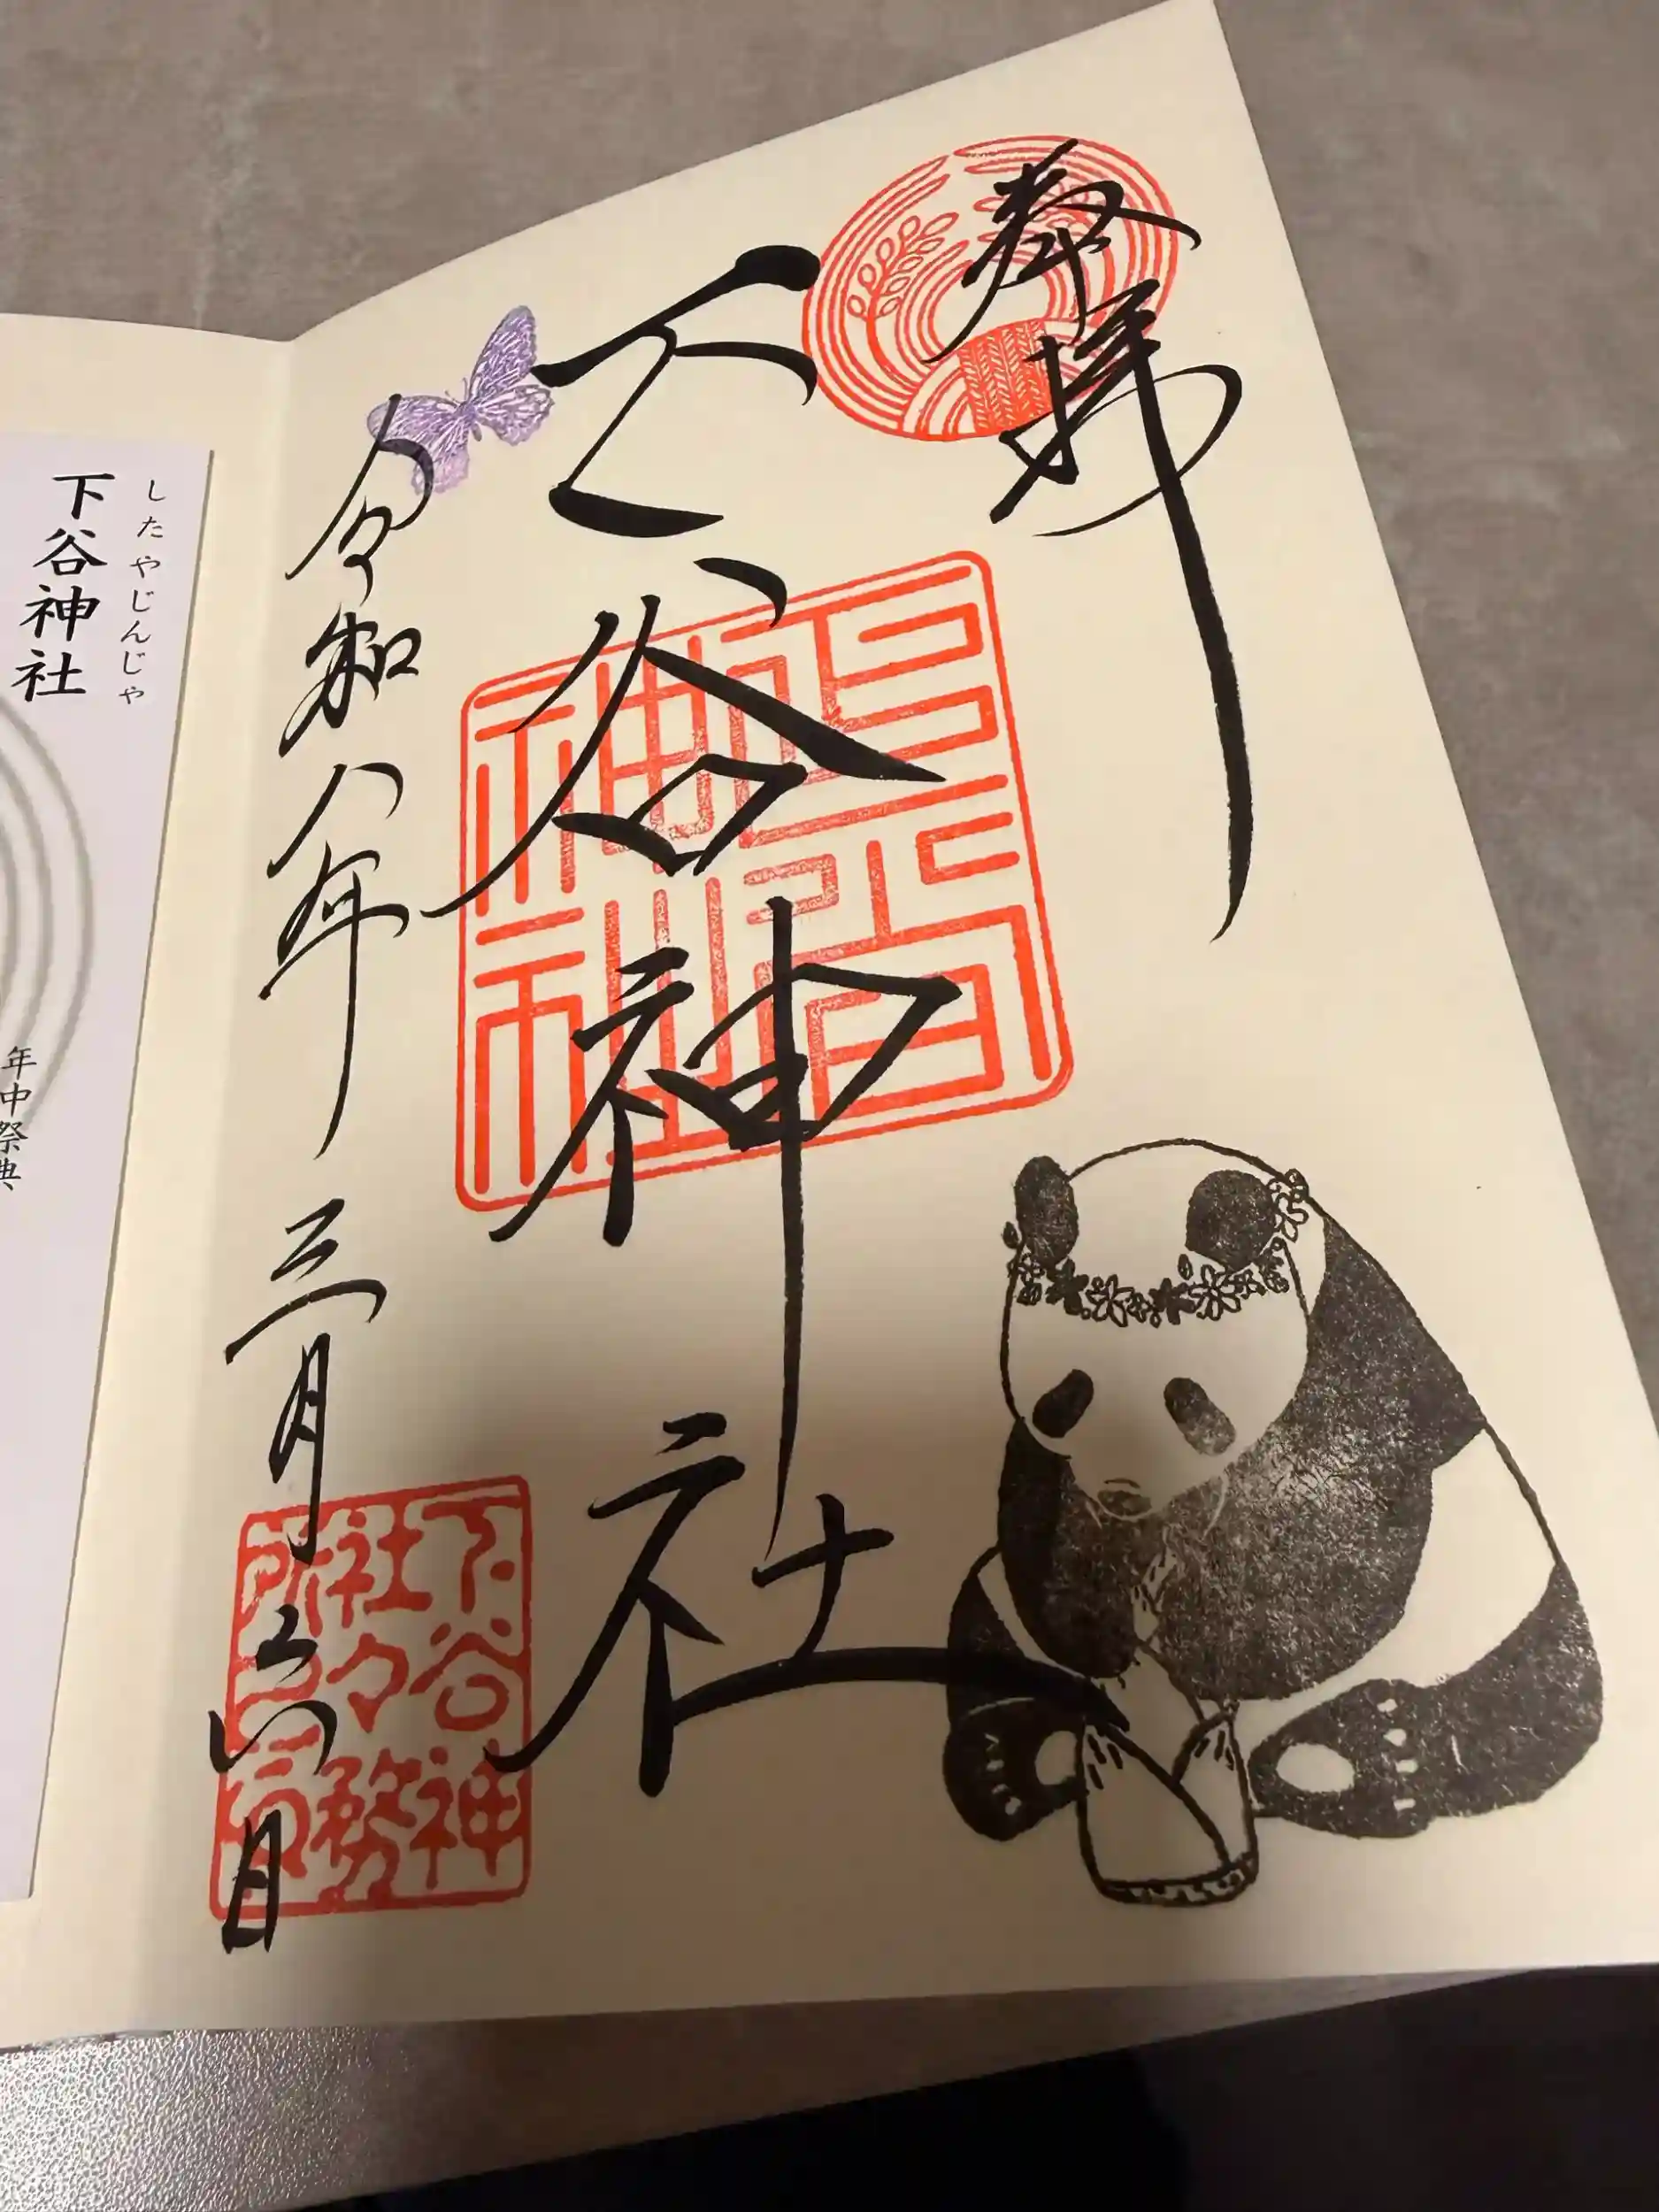 奉拝
下谷神社
令和八年三月六日
下谷神
社々務
所之印
したやじんじゃ
下谷神社
年中祭典